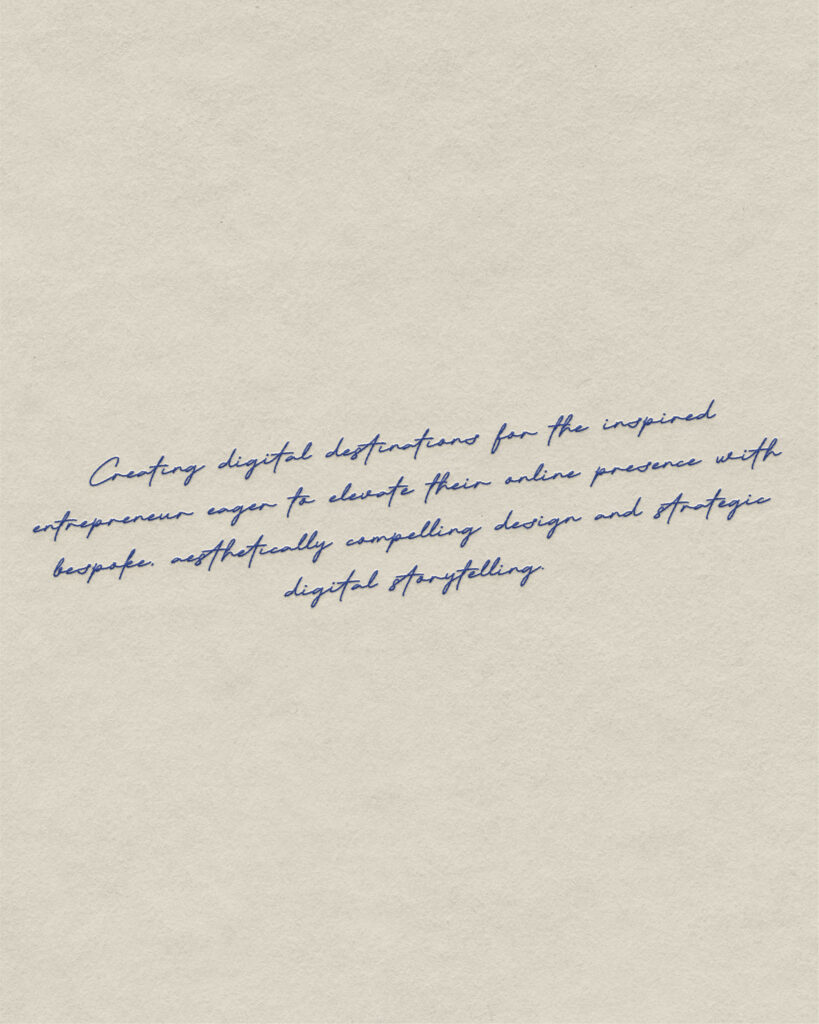 Creating digital destinations for the inspired
entrepreneur eager to elevate their online presence with
bespoke, aesthetically compelling design and strategic
digital storytelling.